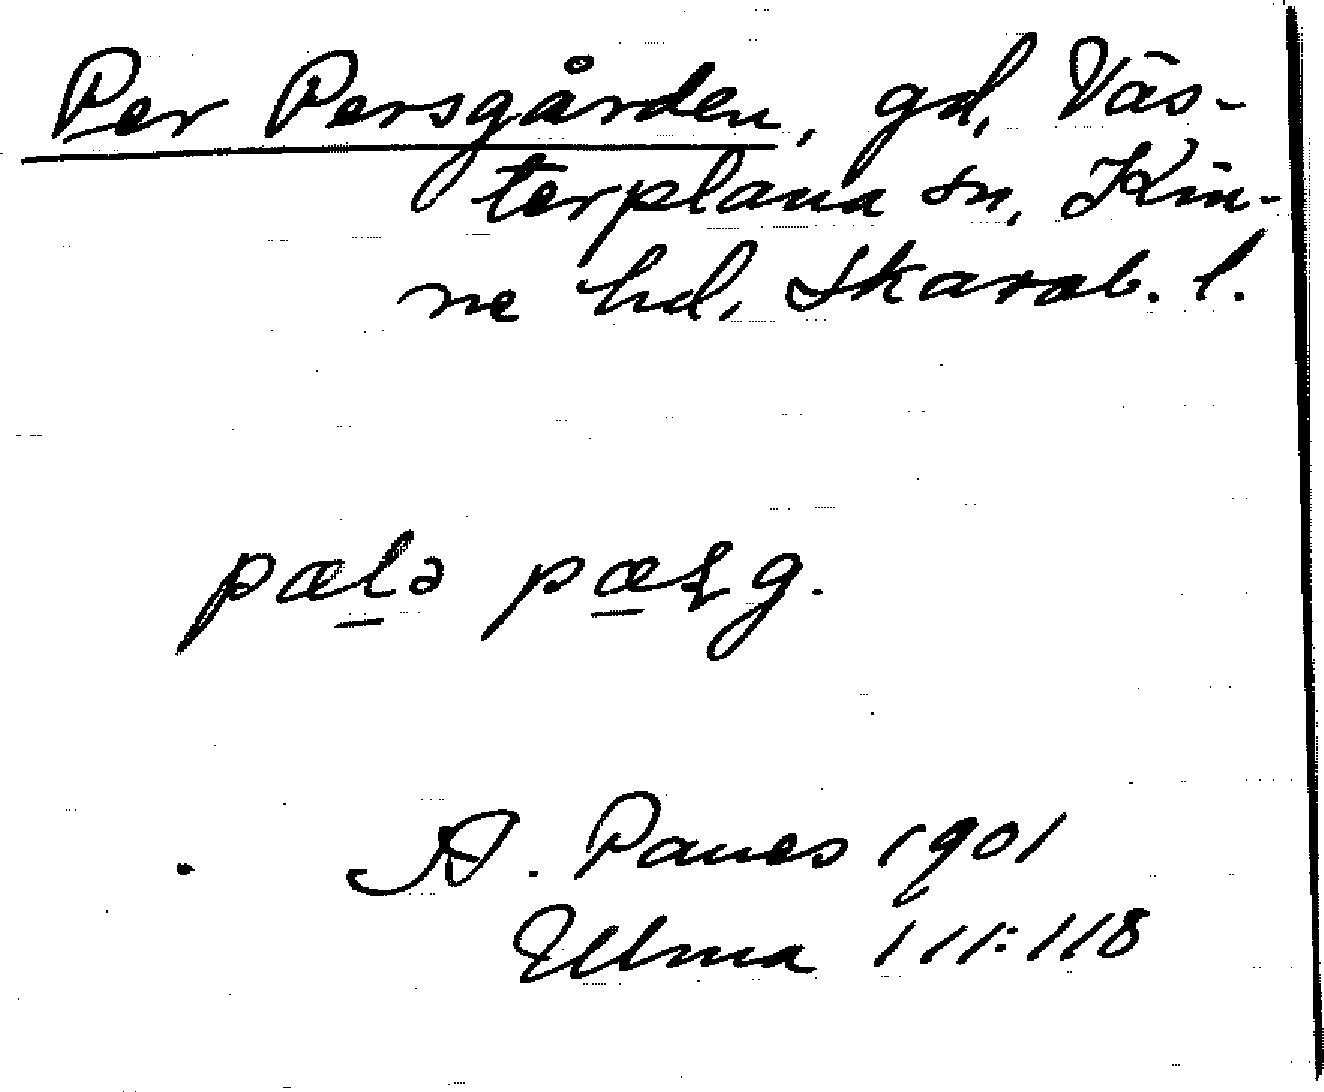 Per Persgården, gd, Väs-
terplana sn, Kin-
ne hd, Skarab. l.
pælə pæʂg.
A. Panes 1901
Ulma 111:118